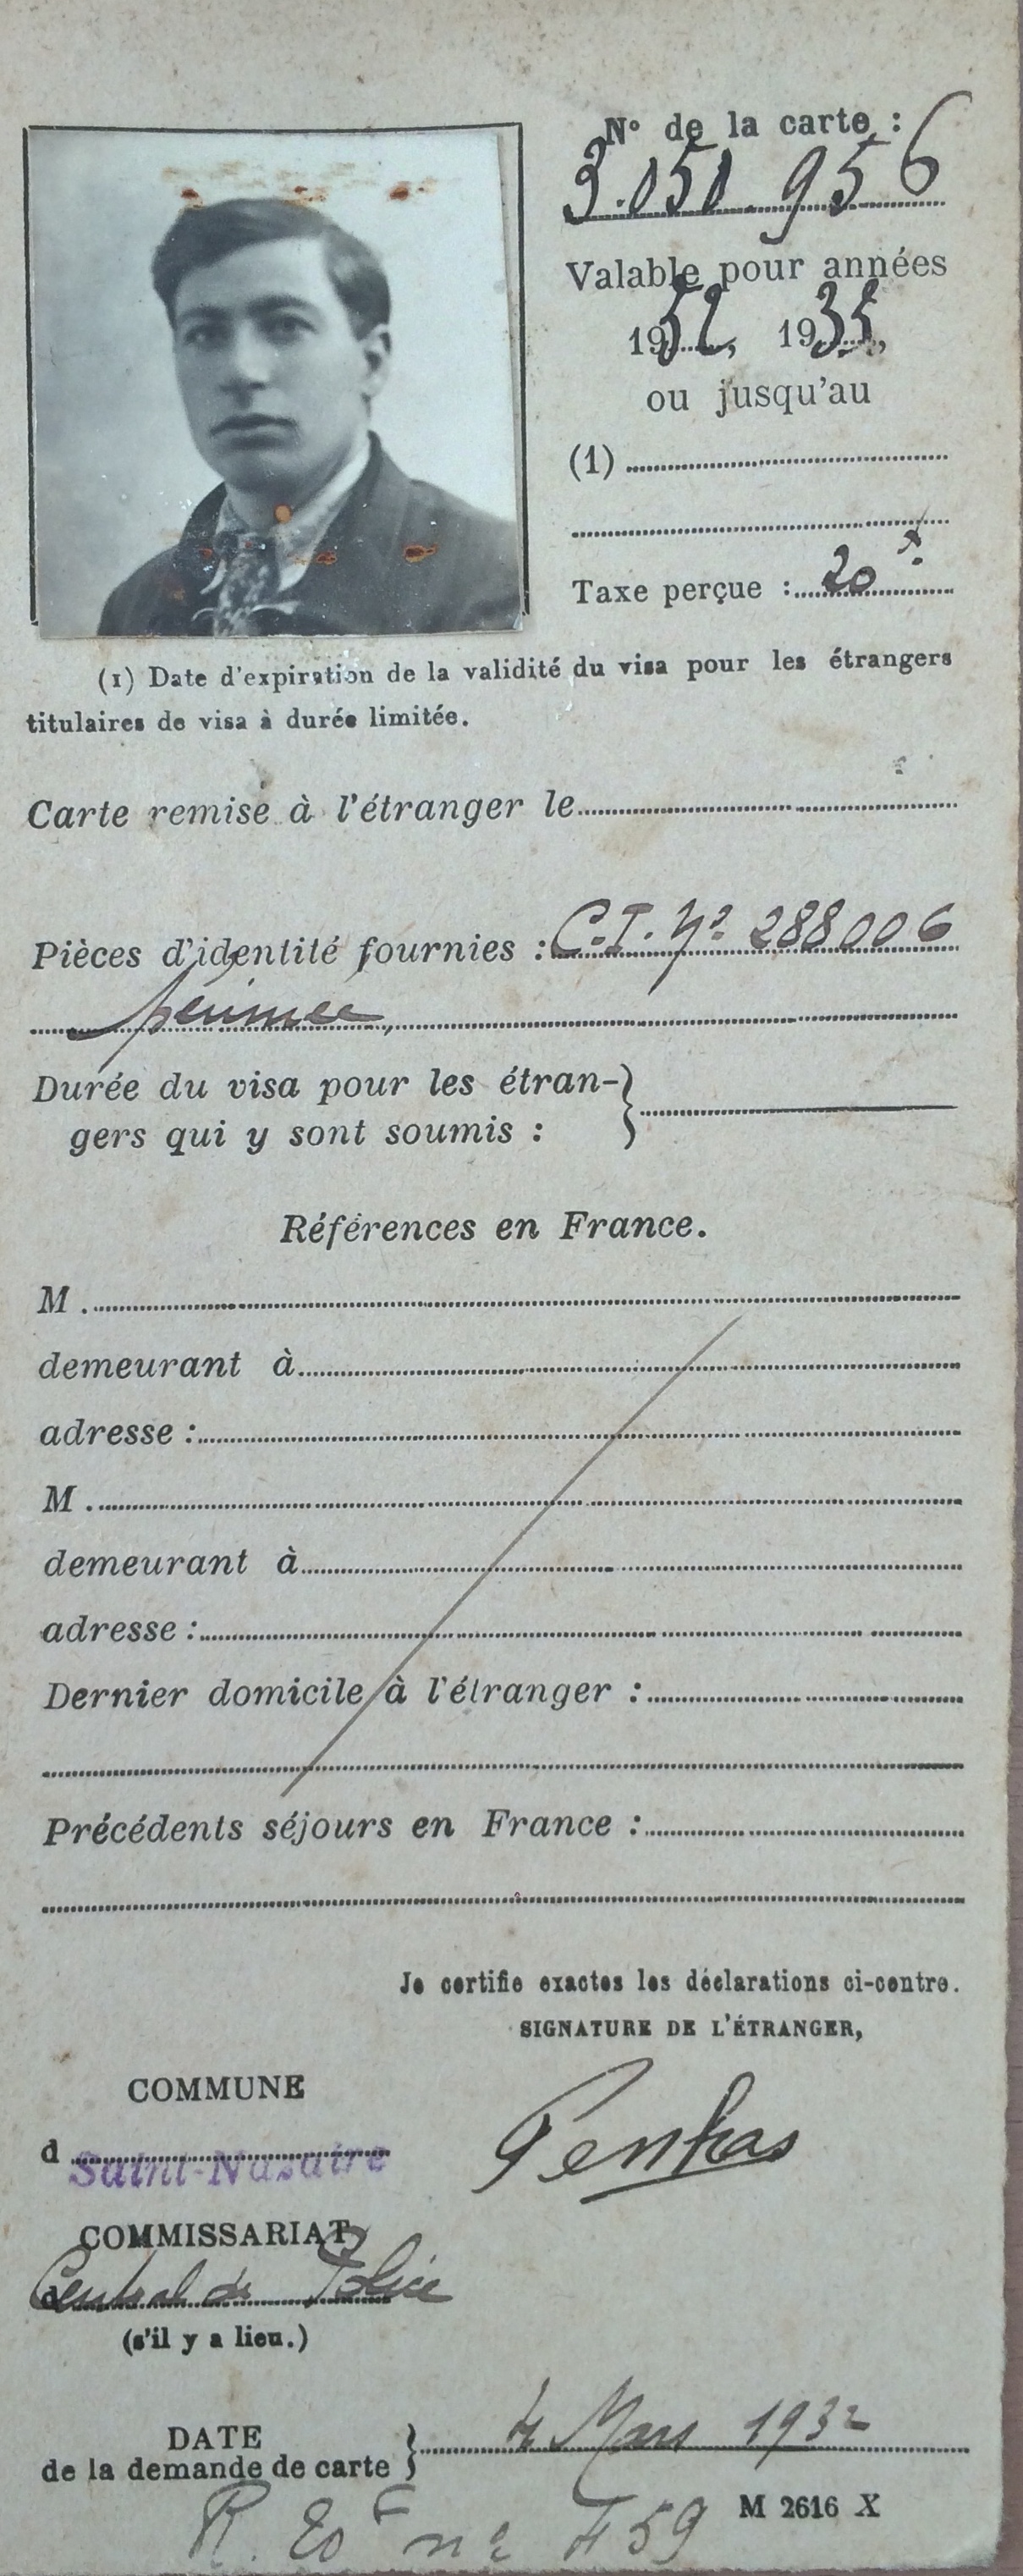 N° de la carte :
3.050.956
Valable pour années
1932, 1933,
ou jusqu'au
(1)
Taxe perçue : 20 f.
(1) Date d'expiration de la validité du visa pour les étrangers
titulaires de visa à durée limitée.
Carte remise à l'étranger le
Pièces d'identité fournies : C.I. N° 288006
périmée,
Durée du visa pour les étran-
gers qui y sont soumis :
Références en France.
M.
demeurant à
adresse :
M.
demeurant à
adresse :
Dernier domicile à l'étranger :
Précédents séjours en France :
Je certifie exactes les déclarations ci-contre.
SIGNATURE DE L'ÉTRANGER,
COMMUNE
d Saint-Nazaire
COMMISSARIAT
d Central de Police
(s'il y a lieu.)
DATE
de la demande de carte } 4 Mars 1932
M 2616 X
R. 20 F n° 459